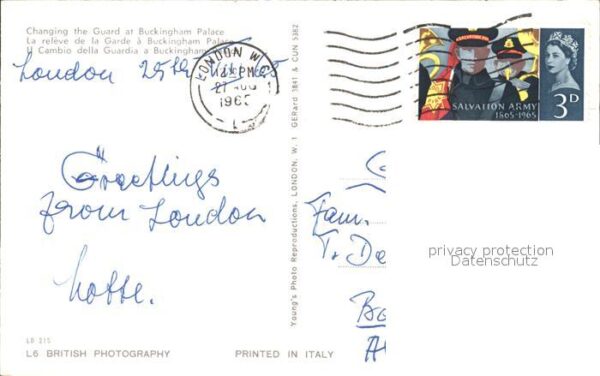 Changing the Guard at Buckingham Palace
La relève de la Garde à Buckingham Palace
Il Cambio della Guardia a Buckingham Palace
London 25th
LONDON W.C.
12 PM
27 AUG
1965
1
SALVATION ARMY
1865-1965
3D
Greetings
from London
Lotte.
Young's Photo Reproductions, LONDON. W. 1 GERrard 3841 & GUN 5382
Fam.
T. De
privacy protection
Datenschutz
LO 215
L6 BRITISH PHOTOGRAPHY
PRINTED IN ITALY